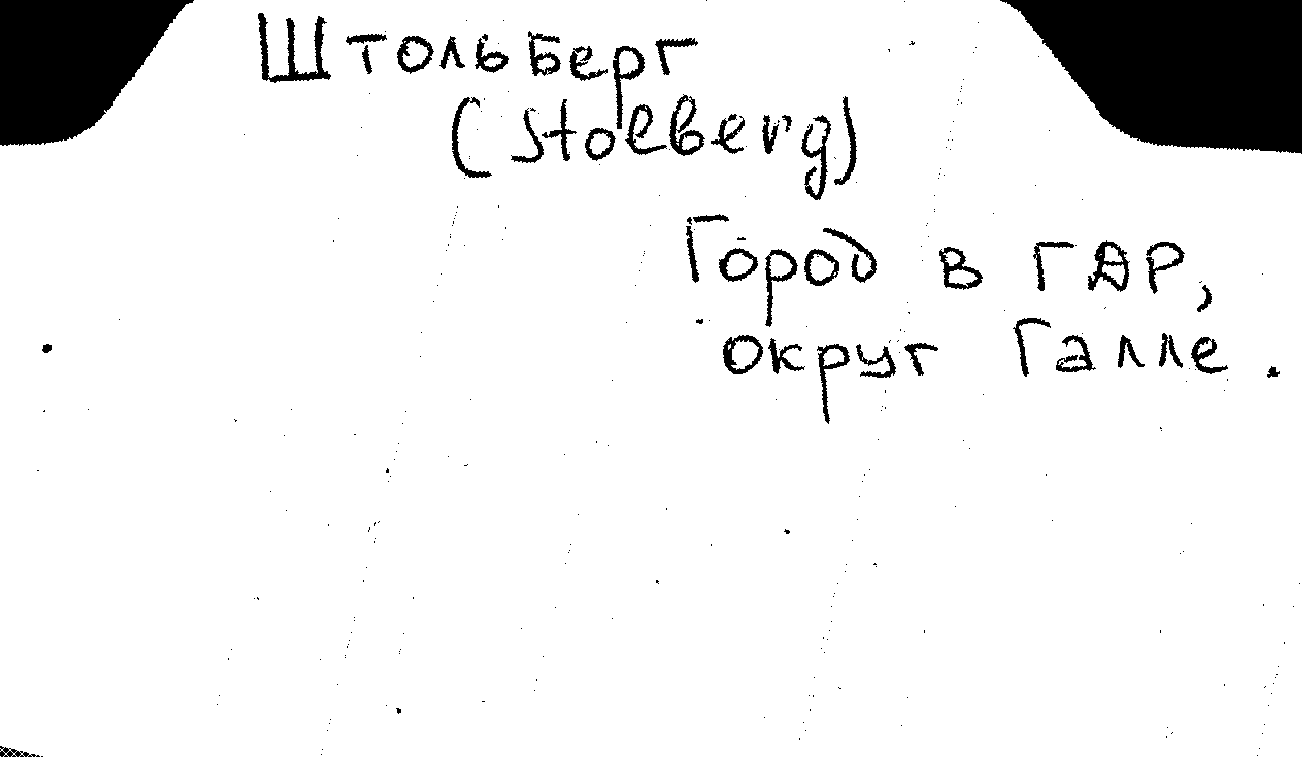 Штольберг
(Stolberg)
Город в ГДР,
округ Галле.